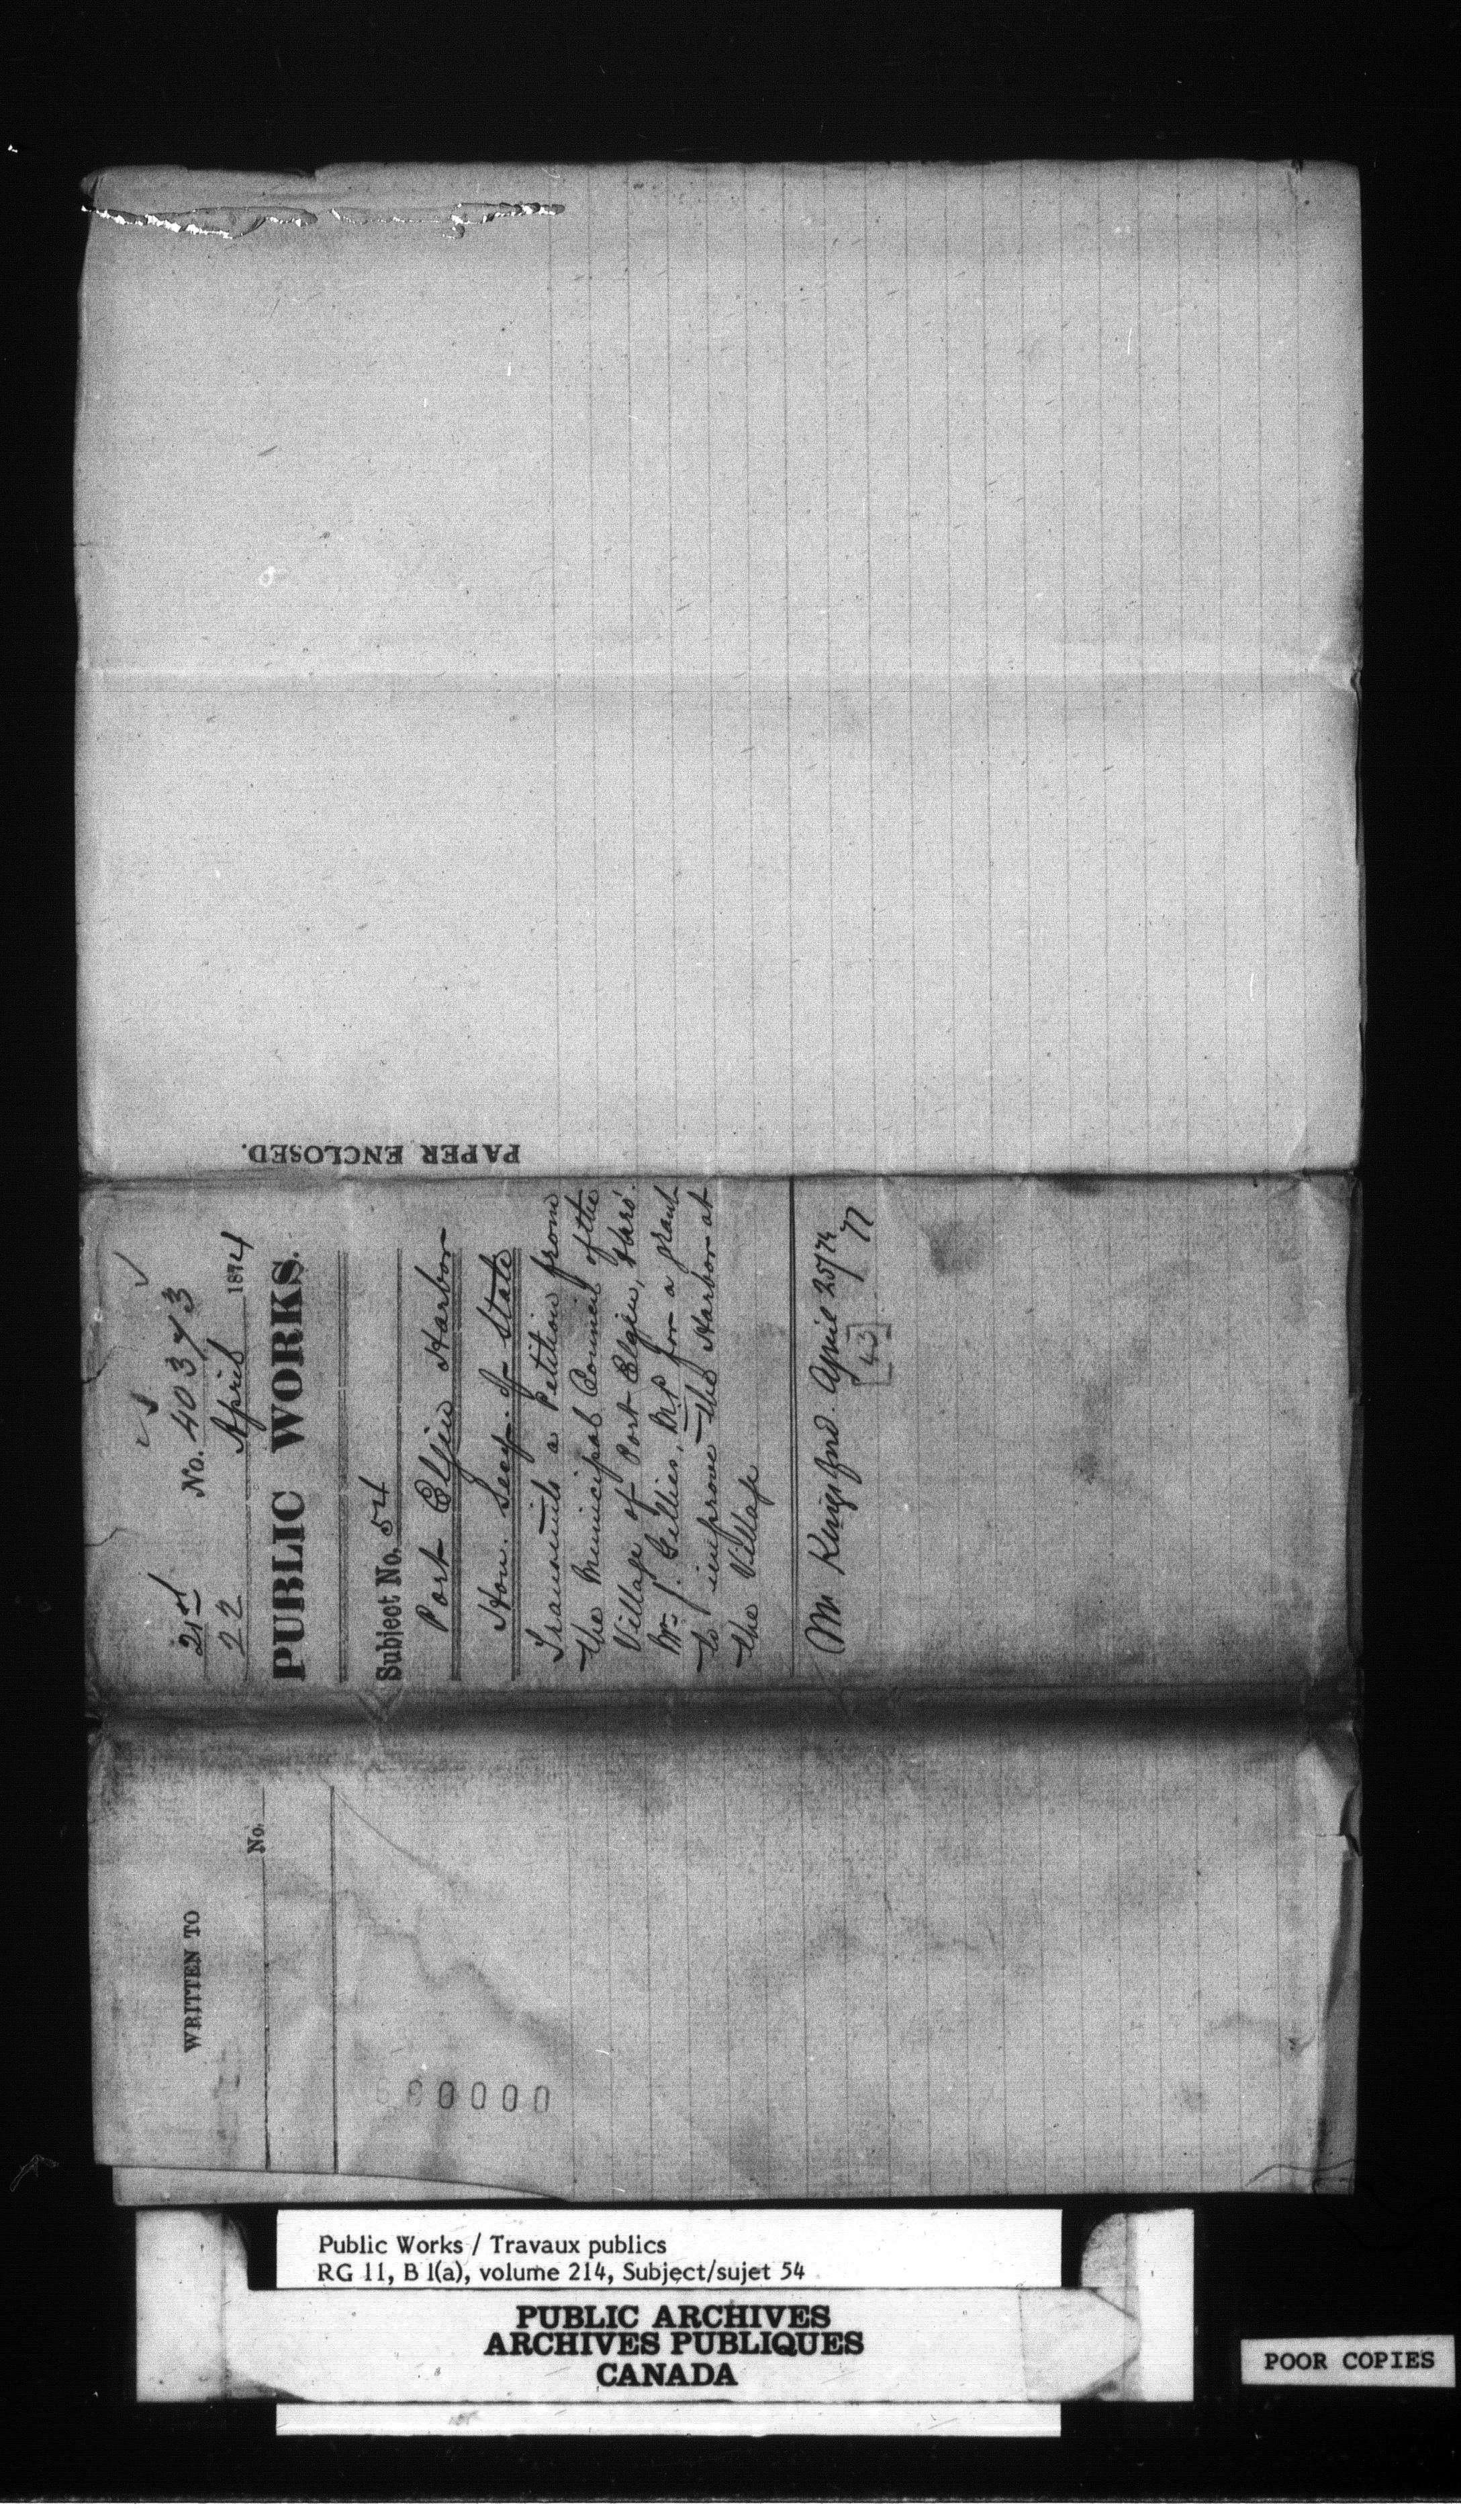 21st No. 40373
22 April 1874
PUBLIC WORKS.
Subject No. 54
Port Elgin Harbor
Hon. Secy. of State
Transmits a Petition from
the Municipal Council of the
Village of Port Elgin, thro'
Mr. J. Gillies, M.P. for a grant
to improve the Harbor at
the Village
Mr Kingsford. April 25/74
77
[43]
PAPER ENCLOSED.
WRITTEN TO
No.
0000
Public Works / Travaux publics
RG 11, B 1(a), volume 214, Subject/sujet 54
PUBLIC ARCHIVES
ARCHIVES PUBLIQUES
CANADA
POOR COPIES